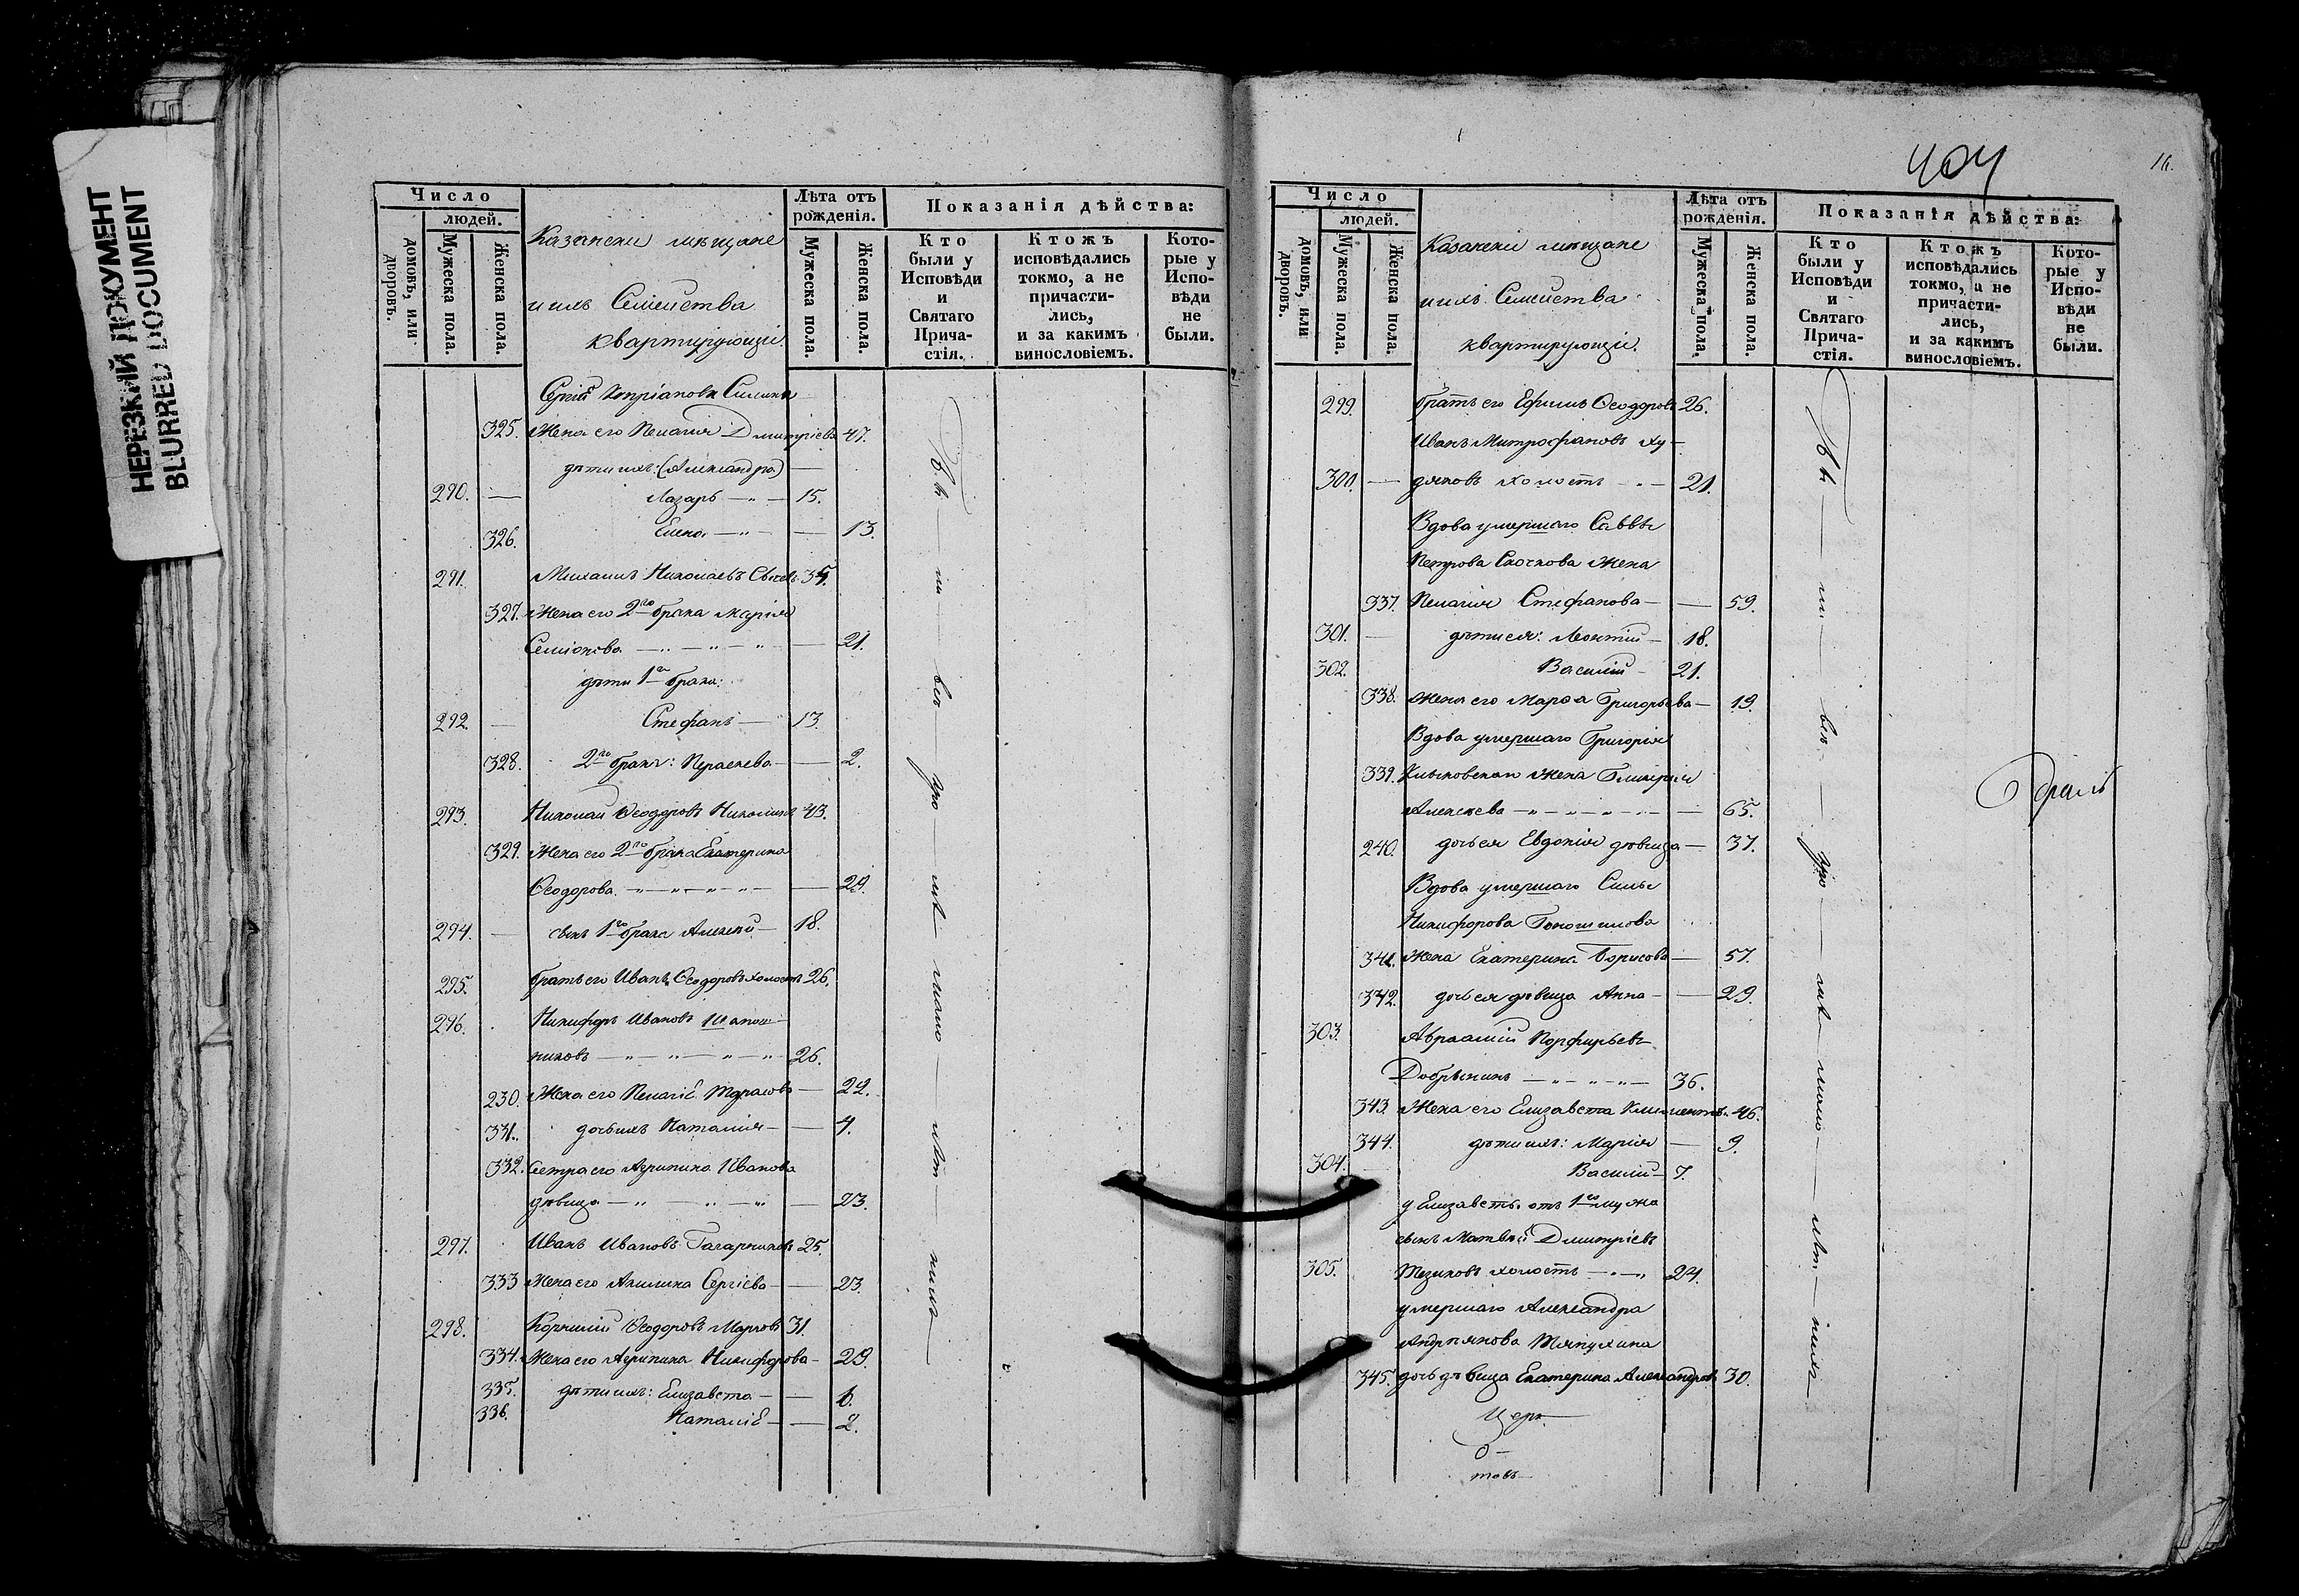 НЕРЕЗКИЙ ДОКУМЕНТ
BLURRED DOCUMENT
Число
людей.
домовъ, или дворовъ.
Мужеска пола.
Женска пола.
Казанскіи мѣщане
и ихъ Семейства
квартирующіи.
Лѣта отъ рожденія.
Мужеска пола.
Женска пола.
Показанія дѣйства:
Кто были у Исповѣди и Святаго Причастія.
Ктожъ исповѣдались токмо, а не причастились, и за какимъ винословіемъ.
Которые у Исповѣди не были.
Сергія Кипріанова
325. Жена его Пелагія Димитріева 47.
дѣти ихъ: (Александра) —
290. — Лазарь — „ — 15.
326. Елена — „ — — 13.
291. Михаилъ Николаевъ
327. Жена его 2го брака Марія
Семіонова — „ — „ — „ — 21.
дѣти 1го брака:
292. — Стефанъ — 13.
328. 2го брака: Параскева — — 2.
293. Николай Ѳеодоровъ 43.
329. Жена его 2го брака Екатерина
Ѳеодорова. — „ — „ — „ — „ — — 29.
294. — сынъ 1го брака Алексѣй — 18.
295. братъ его Иванъ Ѳеодоровъ холостъ 26.
296. Никифоръ Ивановъ Шапош-
никовъ — „ — „ — „ — „ 26.
230. Жена его Пелагіе Тарасова — 22.
331. дочь ихъ Наталія — — 4.
332. Сестра его Агрипина Иванова
дѣвица — „ — „ — „ — 23.
297. Иванъ Ивановъ 25.
333 Жена его Акилина Сергіева — — 23.
298. Корнилій Ѳеодоровъ Марковъ 31.
334. Жена его Агрипина Никифорова — 29.
335. дѣти ихъ: Елизавета — —
336. Наталіе — — 2.
404
16.
Число
людей.
домовъ, или дворовъ.
Мужеска пола.
Женска пола.
Казанскіи мѣщане
и ихъ Семейства
квартирующіи.
Лѣта отъ рожденія.
Мужеска пола.
Женска пола.
Показанія дѣйства:
Кто были у Исповѣди и Святаго Причастія.
Ктожъ исповѣдались токмо, а не причастились, и за какимъ винословіемъ.
Которые у Исповѣди не были.
299. братъ его Ефимъ Ѳеодоровъ 26.
Иванъ Митрофановъ Ху-
300. — дяковъ холостъ — „ — 21.
Вдова умершаго Саввы
Петрова Скочкова жена
337. Пелагія Стефанова — — 59.
301. — дѣти ея: Леонтій — 18.
302. Василій — 21.
338. Жена его Марѳа Григорьева — 19.
Вдова умершаго Григорія
339. жена Гликерія
Алексѣева — „ — „ — „ — „ — — 65.
240. дочь ея Евдокія дѣвица — 37.
Вдова умершаго Силы
Никифорова
341. Жена Екатерина Борисова — 57.
342. дочь ея дѣвица Анна — — 29.
303. Авраамій Порфирьевъ
Добрынинъ — „ — „ — „ — 36.
343. Жена его Елизавета 46.
344. дѣти ихъ: Марія — 9.
304. — Василій — 7.
у Елизаветы отъ 1го мужа
сынъ Матвѣй Димитріевъ
305. Тезиковъ холостъ — „ — „ 24.
умершаго Александра
Андріянова Тяпухина
345. дочь дѣвица Екатерина Александрова 30.
Церк—
о—
товъ—